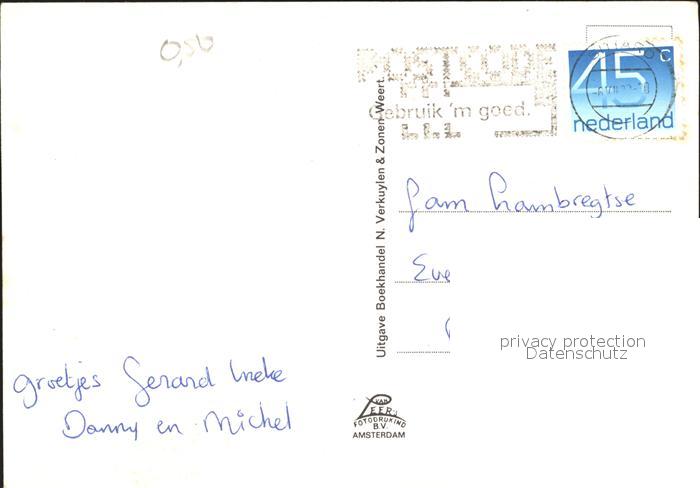 0,50
POSTCODE
Gebruik 'm goed.
45 c
nederland
Uitgave Boekhandel N. Verkuylen & Zonen Weert.
fam Lambregtse
Eve
privacy protection
Datenschutz
groetjes Gerard Ineke
Danny en Michel
VAN
LEER'S
FOTODRUKIND
B.V.
AMSTERDAM